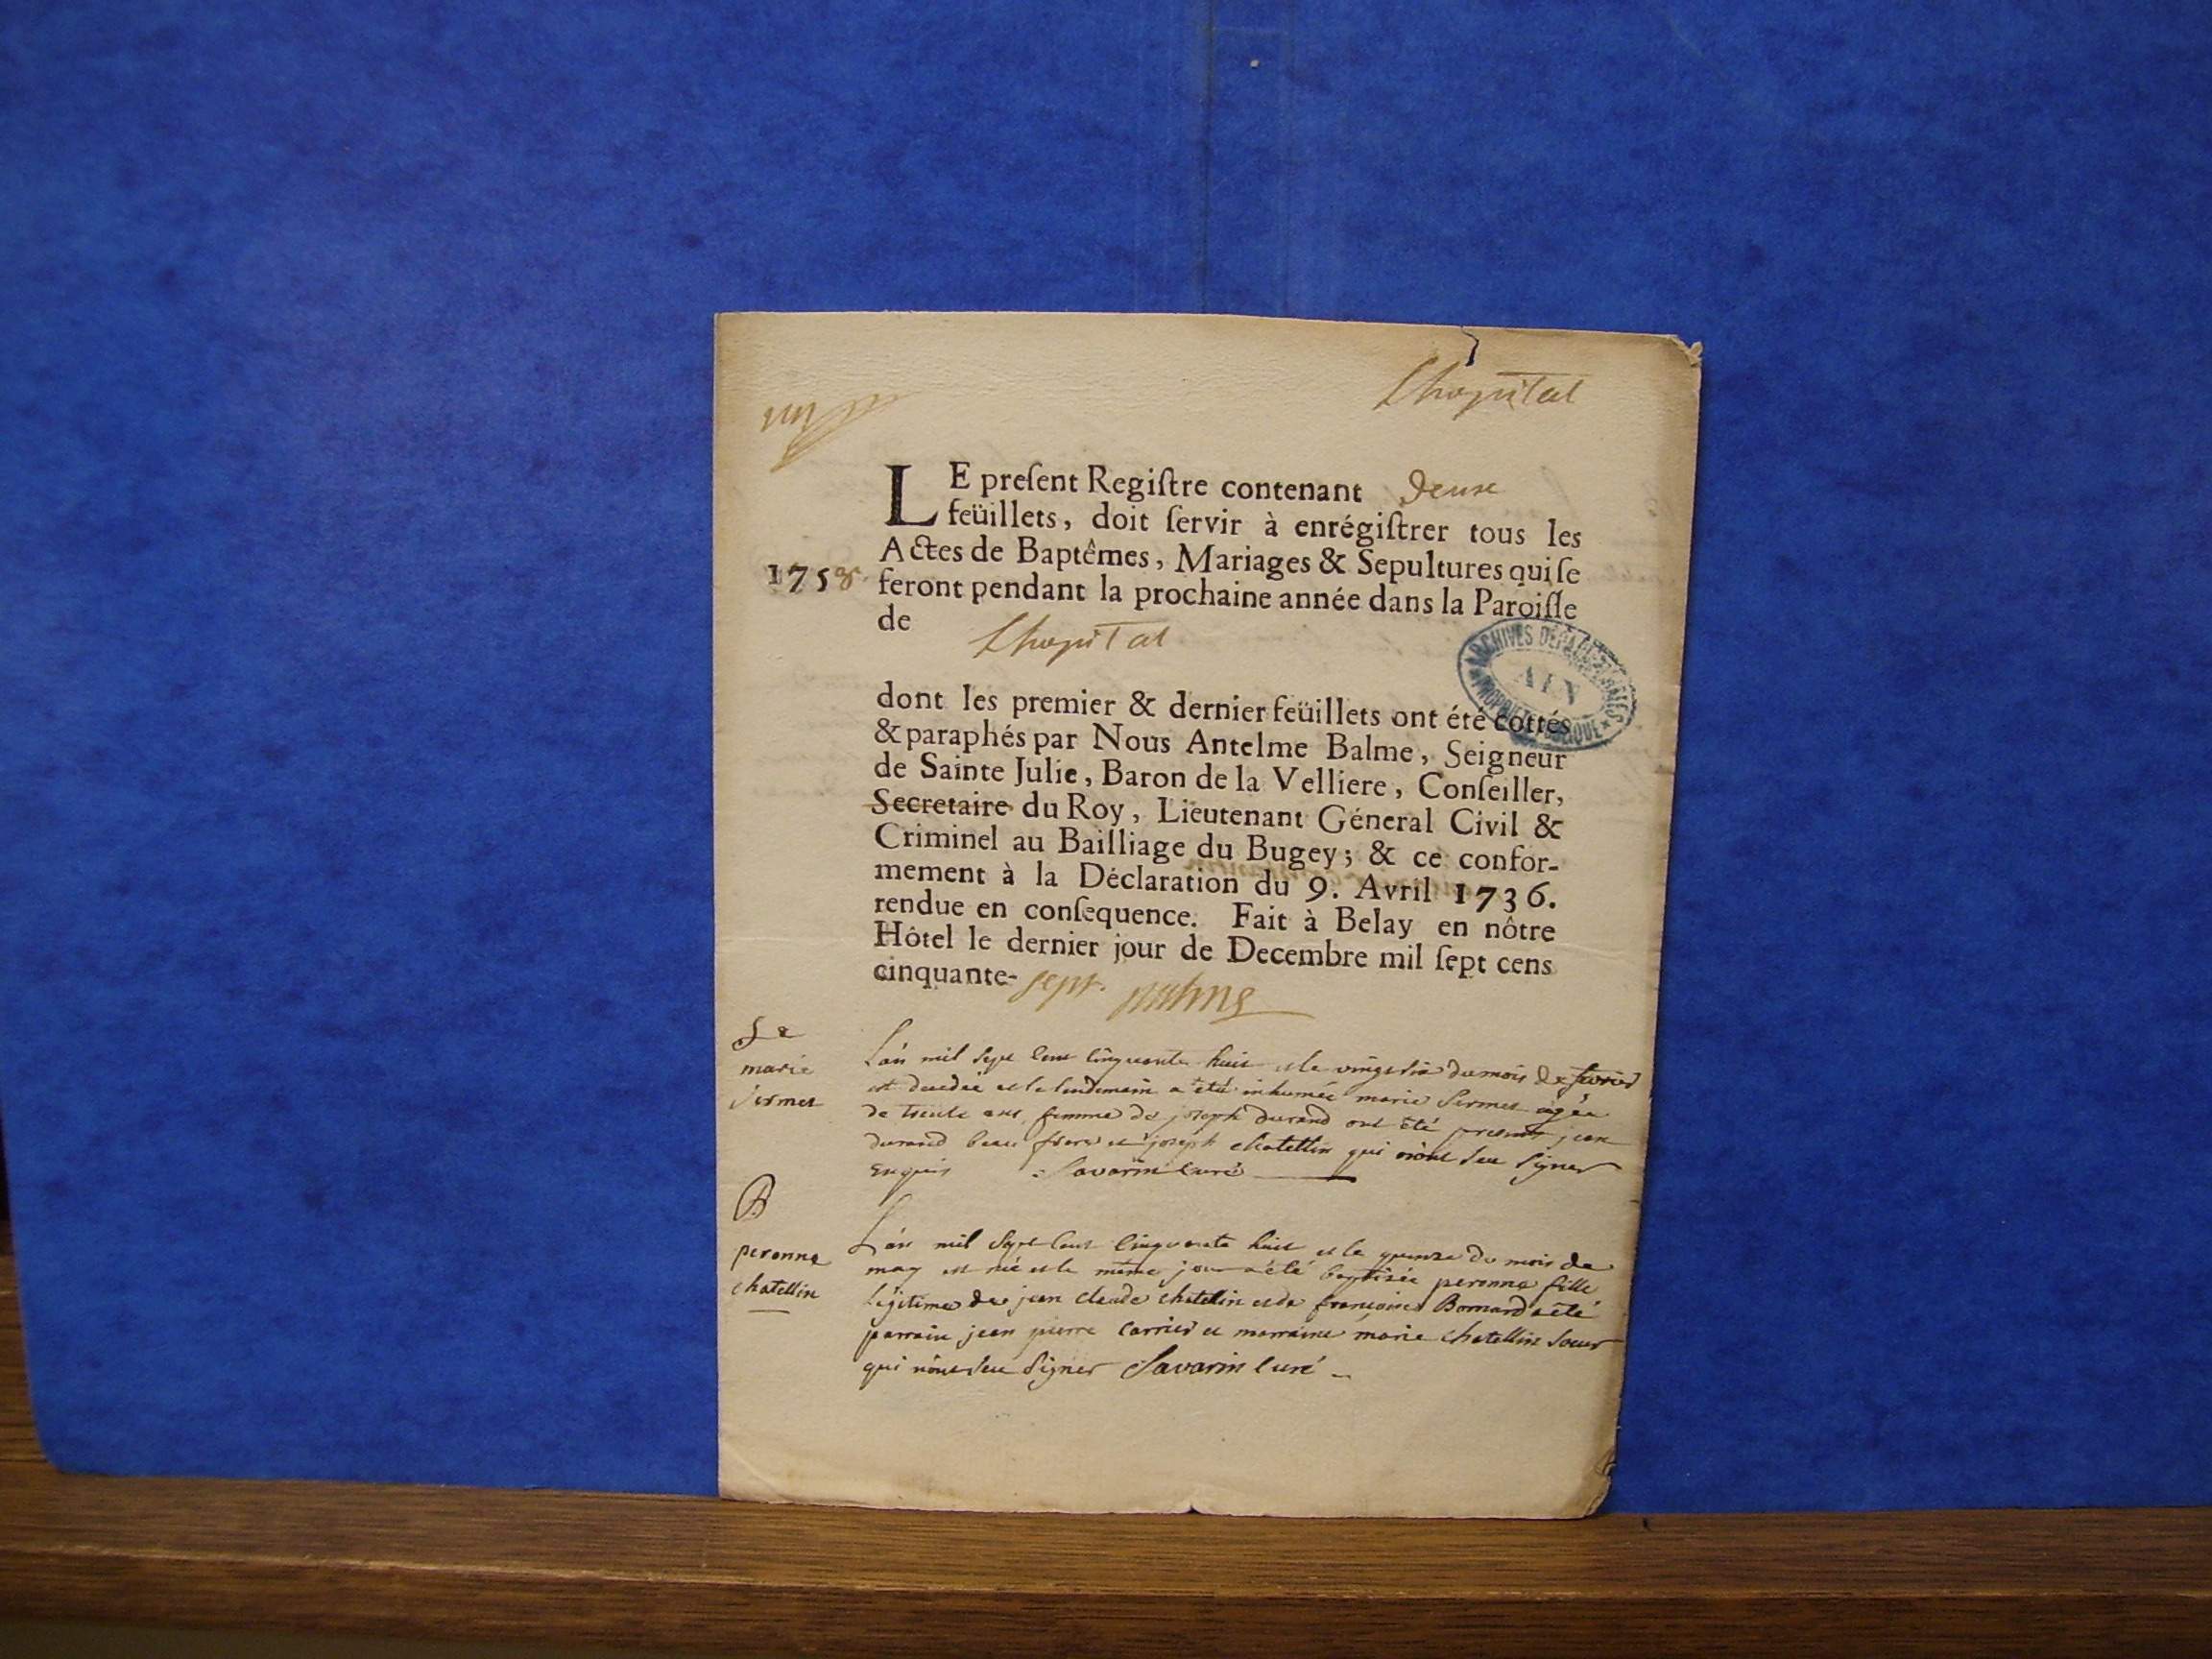 un
Lhopital
LE preſent Regiſtre contenant deux
feüillets, doit ſervir à enrégiſtrer tous les
Actes de Baptêmes, Mariages & Sepultures qui ſe
1758. feront pendant la prochaine année dans la Paroiſſe
de Lhopital
ARCHIVES DÉPARTEMENTALES
AIN
PROPRIÉTÉ PUBLIQUE
dont les premier & dernier feüillets ont été cottés
& paraphés par Nous Antelme Balme, Seigneur
de Sainte Julie, Baron de la Velliere, Conſeiller,
Secretaire du Roy, Lieutenant Géneral Civil &
Criminel au Bailliage du Bugey; & ce confor-
mement à la Déclaration du 9. Avril 1736.
rendue en conſequence. Fait à Belay en nôtre
Hôtel le dernier jour de Decembre mil ſept cens
cinquante-sept. Balme
Se
marie
sermet
L'an mil sept cent cinquante huit et le vingt six du mois de fevrier
est decedée et le lendemain a été inhumée marie sermet agée
de trente ans, femme de joseph durand ont été presents jean
durand beau frere et joseph chatellin qui n'ont seu signer
enquis Savarin curé
B
peronne
chatellin
L'an mil sept cent cinquante huit et le quinze du mois de
may est née et le même jour a été baptisée peronne fille
legitime de jean claude chatellin et de françoise Bornard a été
parrain jean pierre carrier et marraine marie chatellin soeur
qui n'ont seu signer Savarin curé